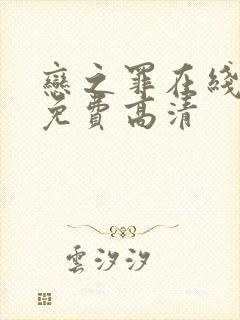 戀之罪在綫
免費高清
雲汐汐